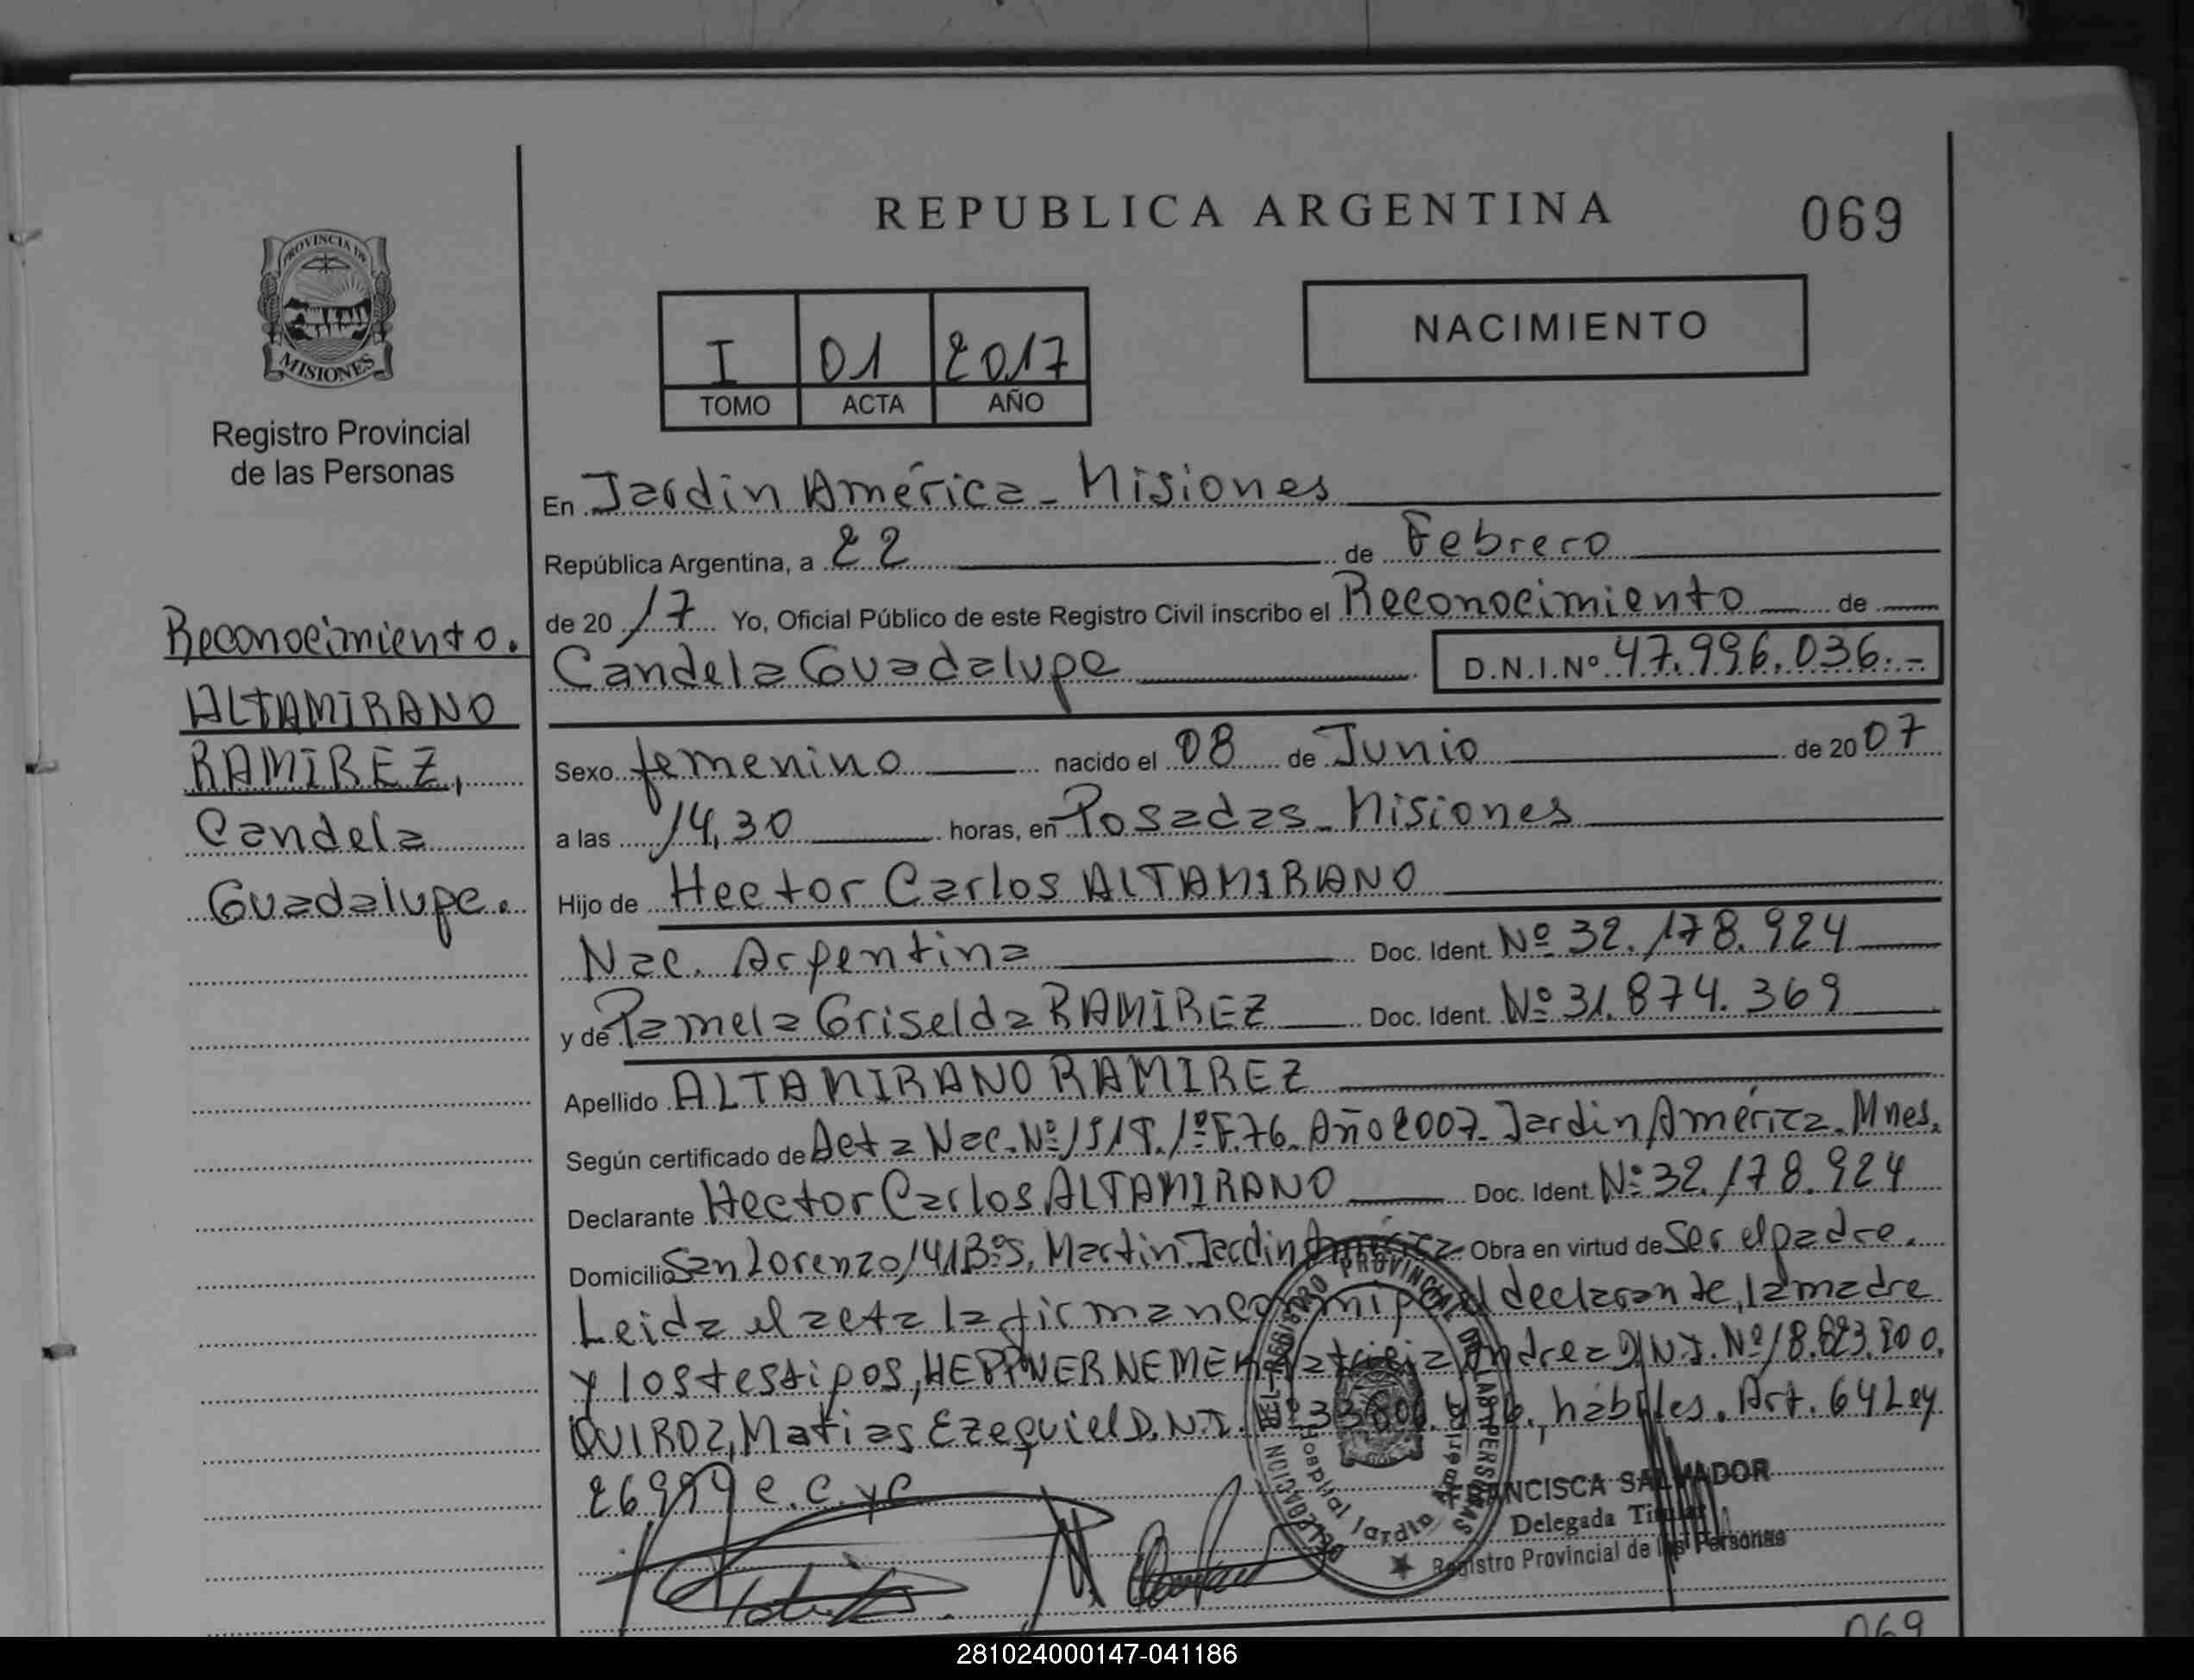 REPUBLICA ARGENTINA
069
PROVINCIA DE
MISIONES
Registro Provincial
de las Personas
I 01 2017
TOMO ACTA AÑO
NACIMIENTO
Reconocimiento.
ALTAMIRANO
RAMIREZ,
Candela
Guadalupe.
En Jardin América - Misiones
República Argentina, a 22 de Febrero
de 20 17 Yo, Oficial Público de este Registro Civil inscribo el Reconocimiento de
Candela Guadalupe D.N.I.Nº 47.996.036.-
Sexo femenino nacido el 08 de Junio de 20 07
a las 14,30 horas, en Posadas - Misiones
Hijo de Hector Carlos ALTAMIRANO
Nac. Argentina Doc. Ident. Nº 32.178.924
y de Pamela Griselda RAMIREZ Doc. Ident. Nº 31.874.369
Apellido ALTAMIRANO RAMIREZ
Según certificado de Acta Nac. Nº 151 T. 1º F. 76. Año 2007. Jardin América. Mnes.
Declarante Hector Carlos ALTAMIRANO Doc. Ident. Nº 32.178.924
Domicilio San Lorenzo 141 Bº S. Martin. Jardin América. Obra en virtud de Ser el padre.
Leida el acta la firman conmigo el declarante, la madre
y los testigos, HEPPNER NEMER Andrea D.N.I. Nº 18.823.200.
QUIROZ, Matias Ezequiel D.N.I. Nº hábiles. Art. 64 Ley
26994 C.C. y C
DELEGACION DEL REGISTRO PROVINCIAL DE LAS PERSONAS
Hospital Jardin América
FRANCISCA SALVADOR
Delegada Titular
Registro Provincial de las Personas
069
281024000147-041186